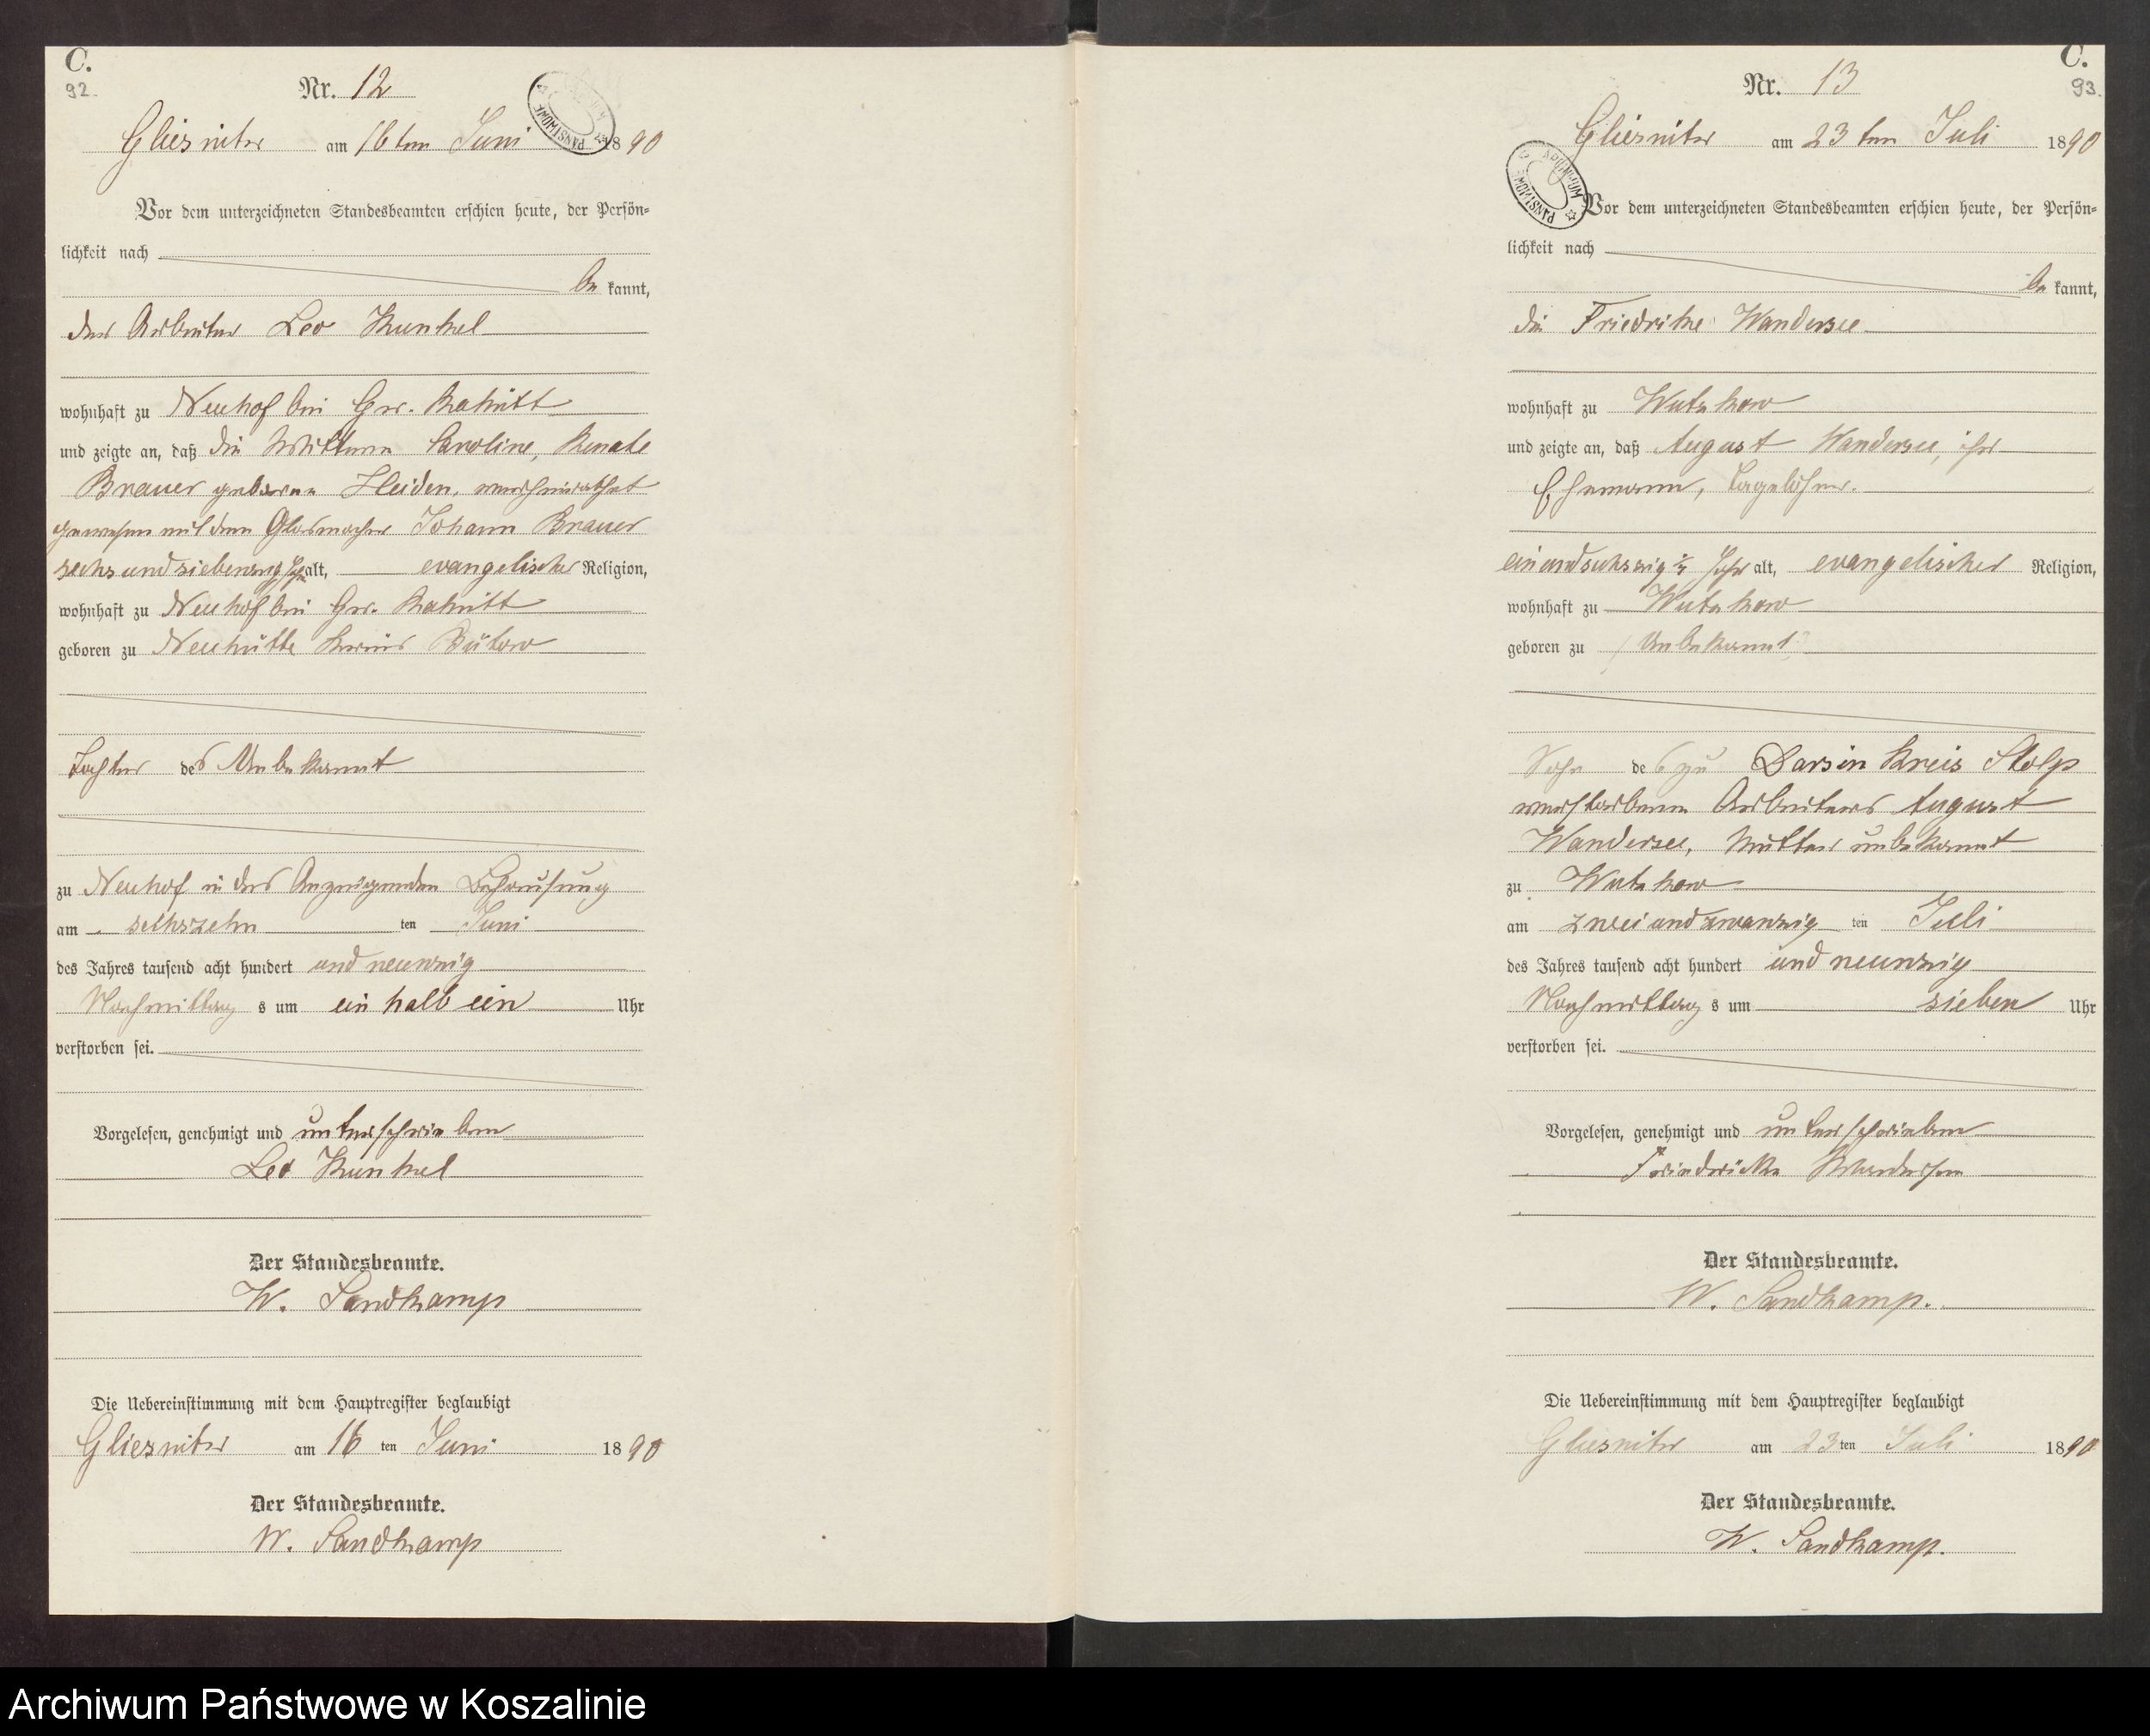 C.
92.
Nr. 12
Gliesnitz am 16ten Juni 1890
Vor dem unterzeichneten Standesbeamten erschien heute, der Persön-
lichkeit nach
be kannt,
der Arbeiter Leo Kunkel
wohnhaft zu Neuhof bei Gr. Rakitt
und zeigte an, daß die Wittwe Caroline, Renate
Brauer geborene Heiden, verheirathet
gewesen mit dem Glasmacher Johann Brauer
sechsundsiebenzig Jahr alt, evangelischer Religion,
wohnhaft zu Neuhof bei Gr. Rakitt
geboren zu Neuhütte Kreis Bütow
Tochter des Unbekannt
zu Neuhof in des Anzeigenden Behausung
am sechszehn ten Juni
des Jahres tausend acht hundert und neunzig
Nachmittag s um ein halb ein Uhr
verstorben sei.
Vorgelesen, genehmigt und unterschrieben
Leo Kunkel
Der Standesbeamte.
W. Sandkamp
Die Uebereinstimmung mit dem Hauptregister beglaubigt
Gliesnitz am 16 ten Juni 1890
Der Standesbeamte.
W. Sandkamp
C.
93.
Nr. 13
Gliesnitz am 23ten Juli 1890
Vor dem unterzeichneten Standesbeamten erschien heute, der Persön-
lichkeit nach
be kannt,
die Friedrike Wandersee
wohnhaft zu Wutzkow
und zeigte an, daß August Wandersee, ihr
Ehemann, Tagelöhner.
einundsechszig Jahr alt, evangelischer Religion,
wohnhaft zu Wutzkow
geboren zu (Unbekannt?
Sohn des zu Darsin Kreis Stolp
verstorbenen Arbeiters August
Wandersee, Mutter unbekannt
zu Wutzkow
am zweiundzwanzig ten Juli
des Jahres tausend acht hundert und neunzig
Nachmittag s um sieben Uhr
verstorben sei.
Vorgelesen, genehmigt und unterschrieben
Friedericke Wandersee
Der Standesbeamte.
W. Sandkamp.
Die Uebereinstimmung mit dem Hauptregister beglaubigt
Gliesnitz am 23 ten Juli 1890
Der Standesbeamte.
W. Sandkamp.
Archiwum Państwowe w Koszalinie